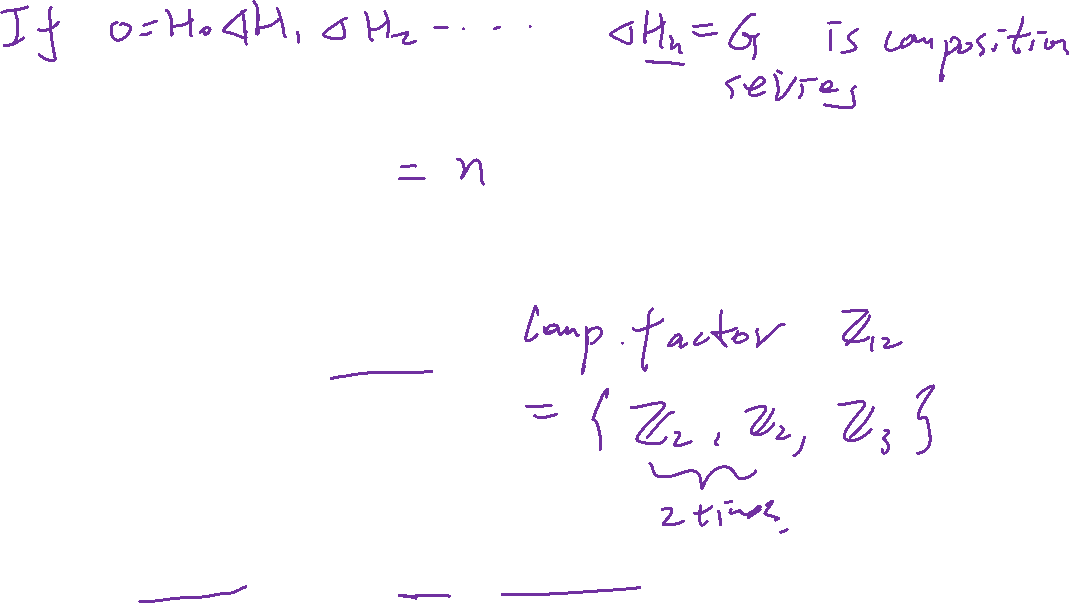 If 0=H₀ ◁ H₁ ◁ H₂ -···· ◁ Hₙ = G is composition
seires
= n
Comp. factor ℤ₁₂
= { ℤ₂, ℤ₂, ℤ₃ }
2 times.